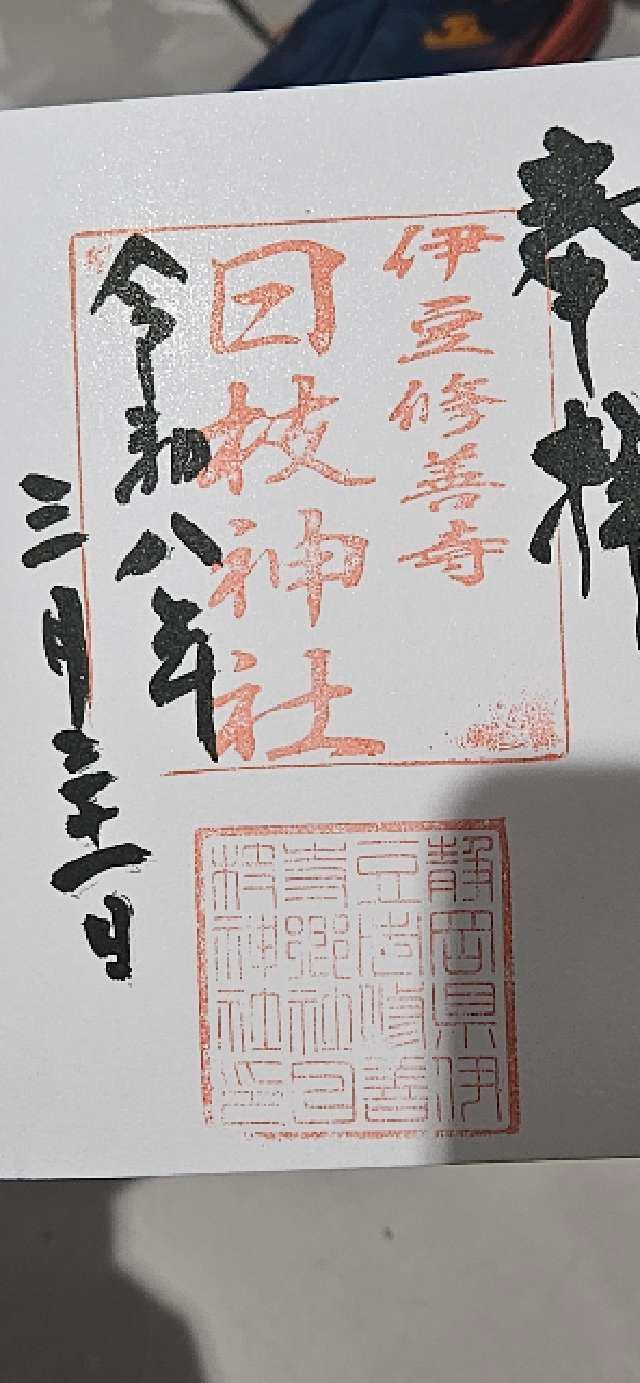 奉拝
伊豆修善寺
日枝神社
令和八年
三月二十一日
静岡県伊
豆国修善
寺郷社日
枝神社印